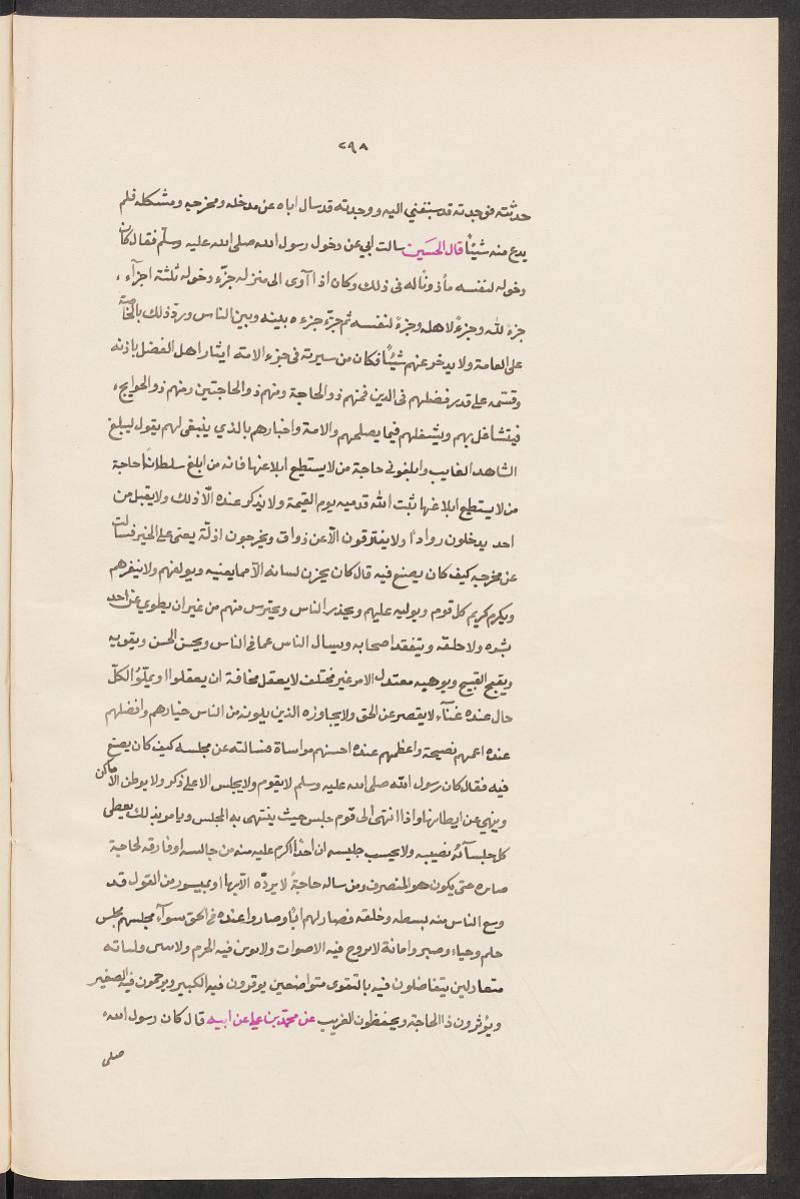 ٢٩٨
حدثته فوجدته قد سبقني اليه ووجدته قد سال اباه عن مدخله ومخرجه ومشكله فلم
يدع منه شيئًا قال الحسين سالت ابي عن دخول رسول الله صلى الله عليه وسلّم فقال كان
دخوله لنفسه مأذونًا له في ذلك وكان اذا آوى الى منزله جزّء دخوله ثلثة اجزآء،
جزءٌ لله وجزءٌ لاهله وجزءٌ لنفسه ثم جزّء جزءه بينه وبين الناس وردّ ذلك بالخاصة
على العامة ولا يدخر عنهم شيئًا فكان من سيرته في جزء الامة ايثار اهل الفضل باذنه
وقسمه على قدر فضلهم في الدين فمنهم ذو الحاجة ومنهم ذو الحاجتين ومنهم ذو الحوايج،
فيتشاغل بهم ويشغلهم فيما يصلحهم والامة واخبارهم بالذي ينبغي لهم يقول ليبلغ
الشاهد الغايب وابلغوني حاجة من لا يستطيع ابلاغها فانه من ابلغ سلطانًا حاجة
من لا يستطيع ابلاغها ثبت الله قدميه يوم القيمة ولا يذكر عنده الّا ذلك ولا يقبل من
احد يدخلون روادًا ولا يفترقون الّا عن ذواق ويخرجون ادلّة يعني على الخير فسالت
عن مخرجه كيف كان يصنع فيه قال كان يخزن لسانه الّا مما يعنيه ويولفهم ولا ينفرهم
ويكرم كريم كل قوم ويوليه عليهم ويحذر الناس ويحترس منهم من غير ان يطوي عن احد
بشره ولا خلقه ويتفقد اصحابه ويسال الناس عما في الناس ويحسن الحسن ويقويه
ويقبح القبيح ويوهيه معتدل الامر غير مختلف لا يعقل مخافة ان يعقلوا ويملّوا لكلّ
حال عنده عتآء لا يقصر عن الحق ولا يجاوزه الذين يلونه من الناس خيارهم وافضلهم
عنده اعمهم نصيحة واعظمهم عنده احسنهم مواساة فسالته عن مجلسه كيف كان يصنع
فيه فقال كان رسول الله صلى الله عليه وسلم لا يقوم ولا يجلس الا على ذكر ولا يوطن الاماكن
وينهي عن ايطانها واذا انتهى الى قوم جلس حيث ينتهي به المجلس ويامر بذلك يعطى
كل جلسآئه نصيبه ولا يحسب جليسه ان احدًا اكرم عليه منه من جالسه او فارقه لحاجة
صابره حتى يكون هو المنصرف ومن ساله حاجةً لا يردّه الّا بها او بميسور من القول قد
وسع الناس منه بسطه وخلقه فصار لهم ابًا وصاروا عنده في الحق سوآء مجلسهم مجلس
حلم وحياء وصبر وامانة لا ترفع فيه الاصوات ولا توبن فيه الحرم ولا فلتاته
متعادلين يتفاضلون فيه بالتقوى متواضعين يوقرون فيه الكبير ويرحمون فيه الصغير
ويؤثرون ذا الحاجة ويحفظون الغريب عن محمّد بن علي عن ابيه قال كان رسول الله
صلى